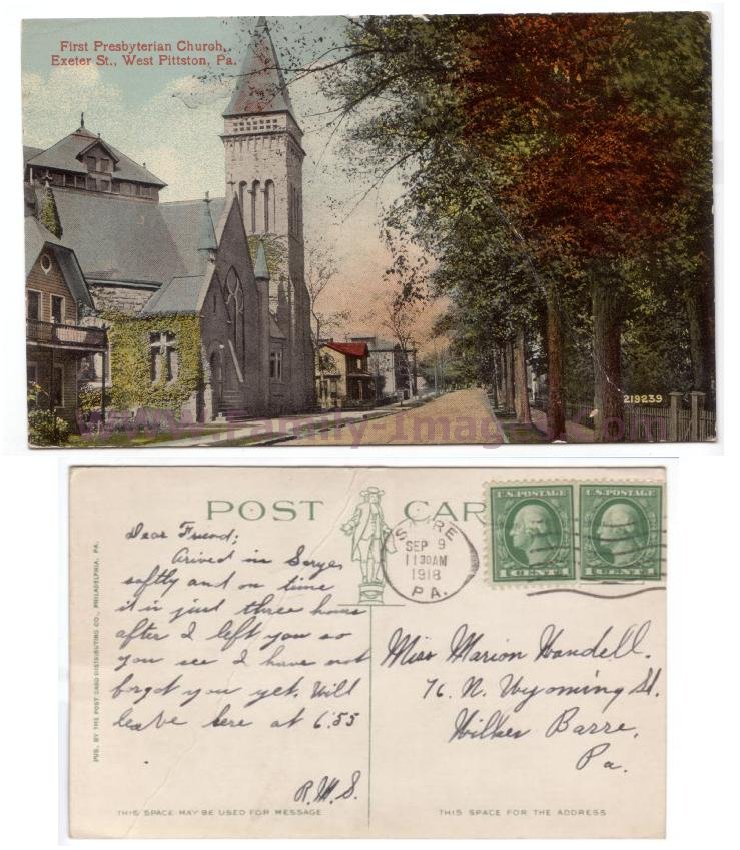 First Presbyterian Church,
Exeter St., West Pittston, Pa.
219239
www.Family-Images.com
POST CAR
U.S. POSTAGE U.S. POSTAGE
1 CENT 1 CENT 1
SEP 9
11 30 AM
1918
PA.
Dear Friend;
Arived in
saftly and on time
it is just three hours
after I left you so
you see I have not
forgot you yet. Will
leave here at 6.55
R.M.S.
Miss Marion Wandell.
76. N. Wyoming St.
Wilkes Barre.
Pa.
PUB. BY THE POST CARD DISTRIBUTING CO., PHILADELPHIA, PA.
THIS SPACE MAY BE USED FOR MESSAGE
THIS SPACE FOR THE ADDRESS